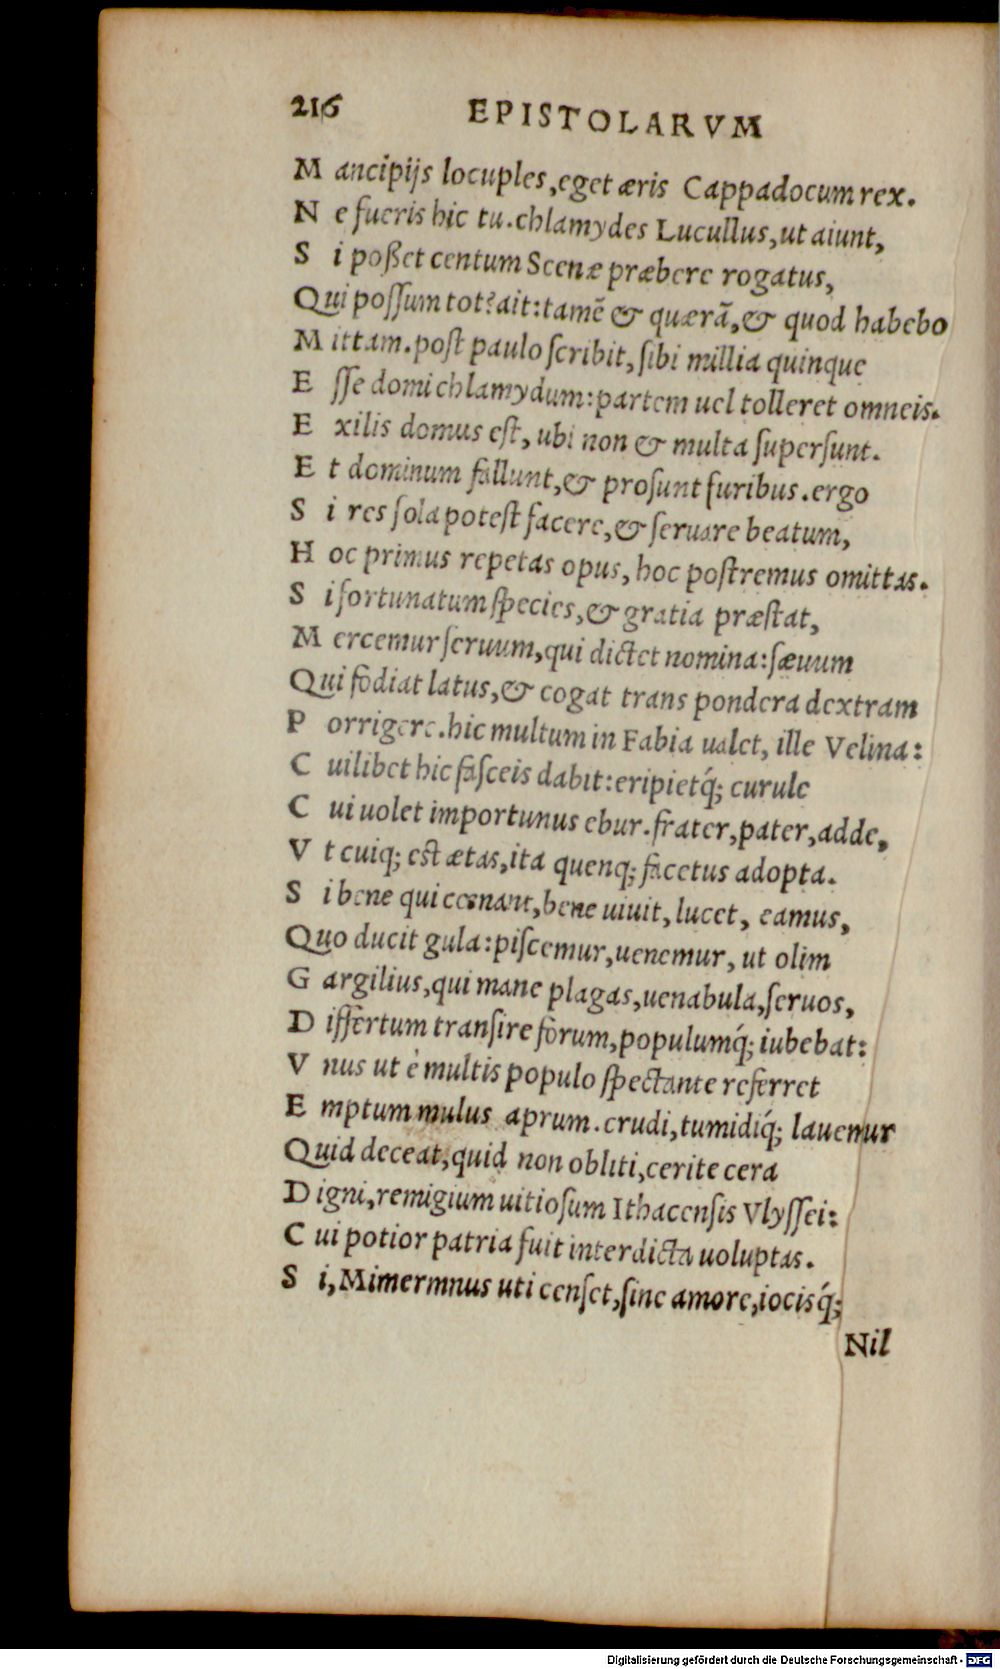 216 EPISTOLARVM
M ancipijs locuples, eget æris Cappadocum rex.
N e fueris hic tu. chlamydes Lucullus, ut aiunt,
S i poßet centum Scenæ præbere rogatus,
Qui possum tot? ait: tamē & quærā, & quod habebo
M ittam. post paulo scribit, sibi millia quinque
E sse domi chlamydum: partem uel tolleret omneis.
E xilis domus est, ubi non & multa supersunt.
E t dominum fallunt, & prosunt furibus. ergo
S i res sola potest facere, & seruare beatum,
H oc primus repetas opus, hoc postremus omittas.
S i fortunatum species, & gratia præstat,
M ercemur seruum, qui dictet nomina: sæuum
Qui fodiat latus, & cogat trans pondera dextram
P orrigere. hic multum in Fabia ualet, ille Velina:
C uilibet hic fasceis dabit: eripietq́; curule
C ui uolet importunus ebur. frater, pater, adde,
V t cuiq; est ætas, ita quenq; facetus adopta.
S i bene qui cœnant, bene uiuit, lucet, eamus,
Quo ducit gula: piscemur, uenemur, ut olim
G argilius, qui mane plagas, uenabula, seruos,
D iffertum transire forum, populumq́; iubebat:
V nus ut è multis populo spectante referret
E mptum mulus aprum. crudi, tumidiq́; lauemur
Quid deceat, quid non obliti, cerite cera
D igni, remigium uitiosum Ithacensis Vlyssei:
C ui potior patria fuit interdicta uoluptas.
S i, Mimermnus uti censet, sine amore, iocisq́;
Nil
Digitalisierung gefördert durch die Deutsche Forschungsgemeinschaft - DFG